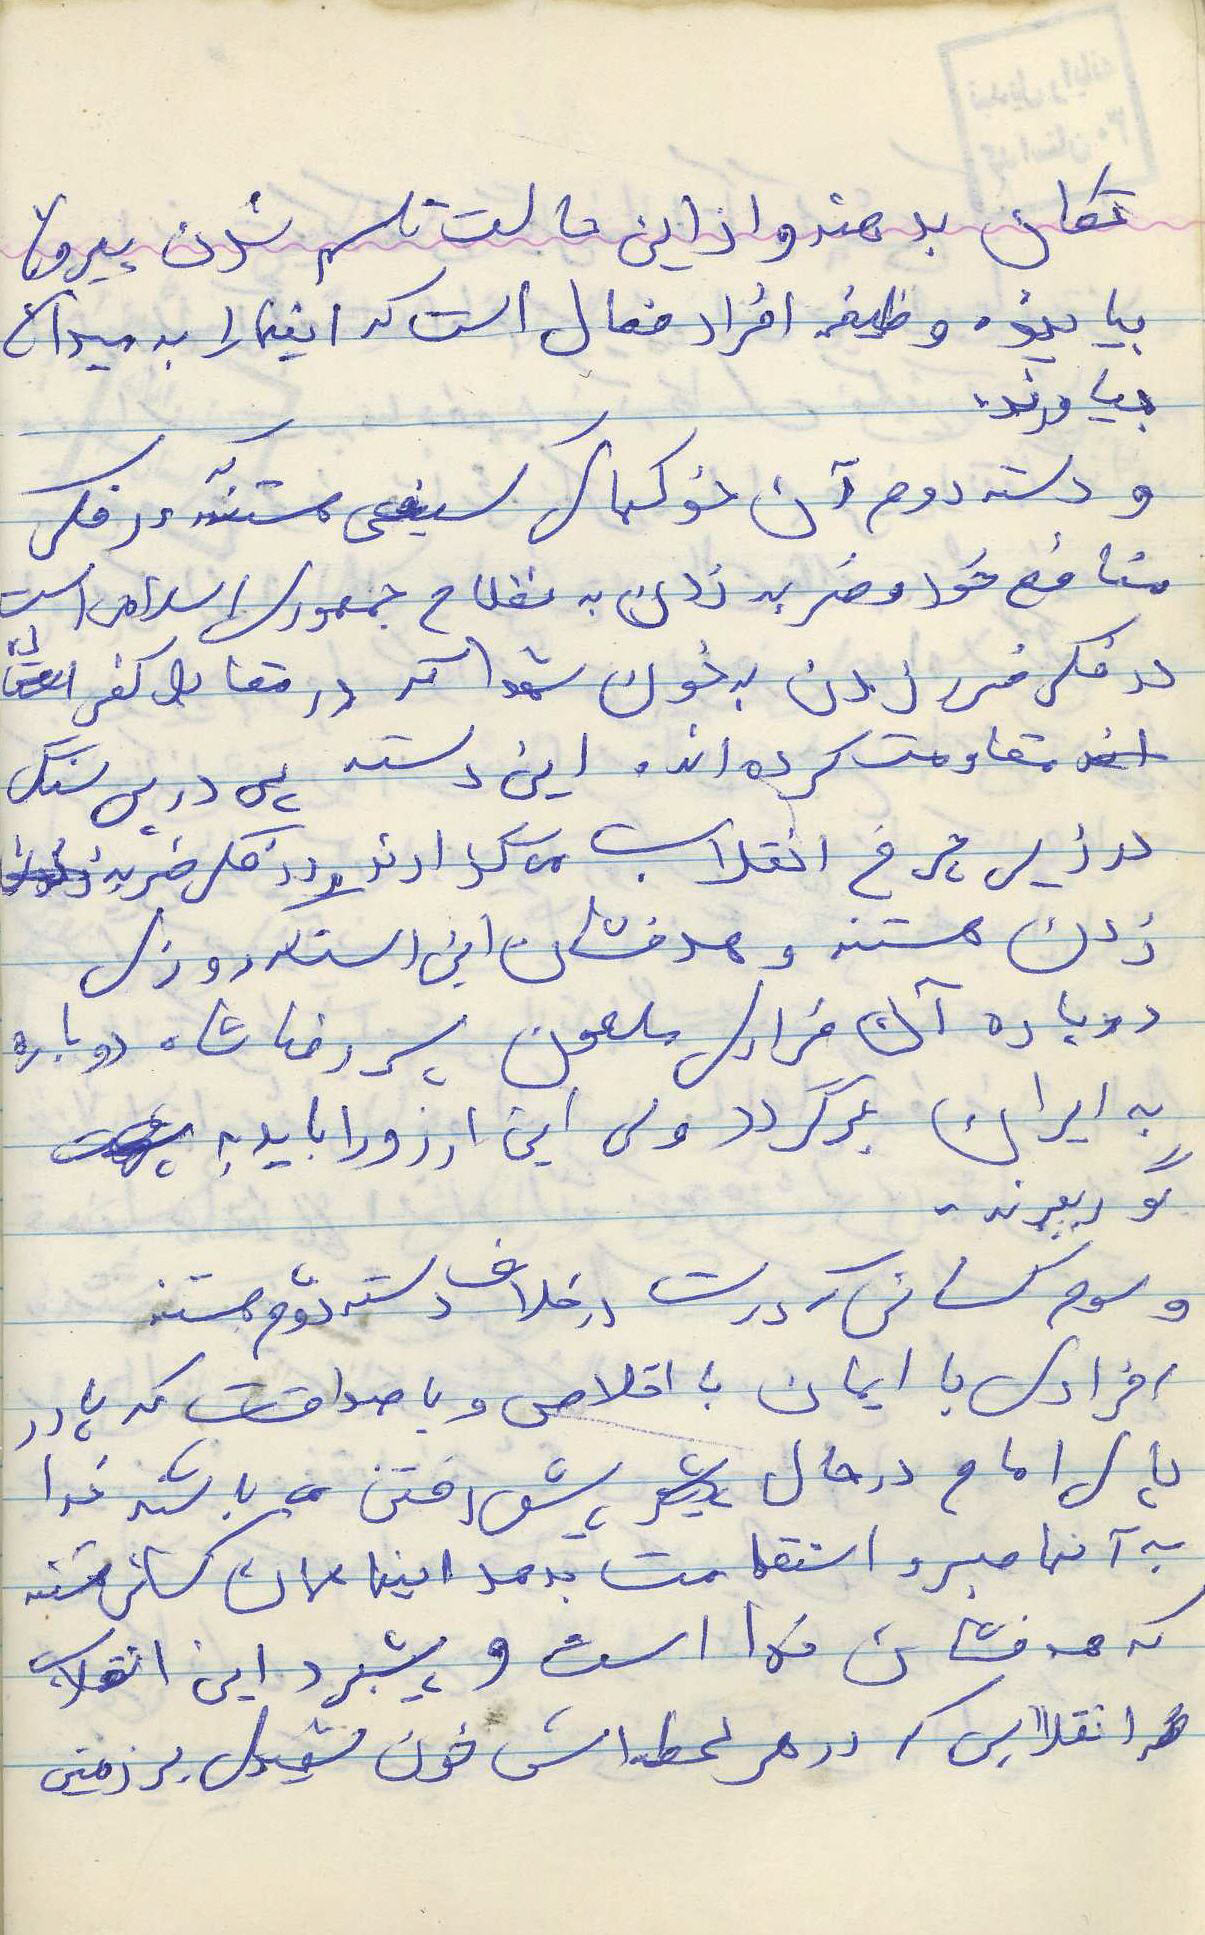 تکان بدهند و از این حالت تسلیم شدن بیرون
بیایند و وظیفه افراد فعال است که اینها را به میدان
بیاورند.
و دسته دوم آن خوکهای سیفی هستند که در فکر
منافع خود و ضربه زدن به نظام جمهوری اسلامی است
در فکر ضرر زدن به خون شهدا که در مقابل کفر
مقاومت کرده اند. این دسته پی در پی سنگ
در زیر چرخ انقلاب می گذارند و در فکر ضربه
زدن هستند و هدفشان این است که روزی
دوباره آن فراری ملعون پسر رضا شاه دوباره
به ایران برگردد ولی این ارزو را باید به
گور ببرند.
و سوم کسانی که درست در خلاف دسته دوم هستند
افرادی با ایمان با اخلاص و با صداقت که پا در
پای امام در حال پیش رفتن می باشند خدا
به آنها صبر و استقامت بدهد اینها همان کسانی هستند
که هدفشان خدا است و پیشبرد این انقلاب
انقلابی که در هر لحظه اش خون شهیدی بر زمین